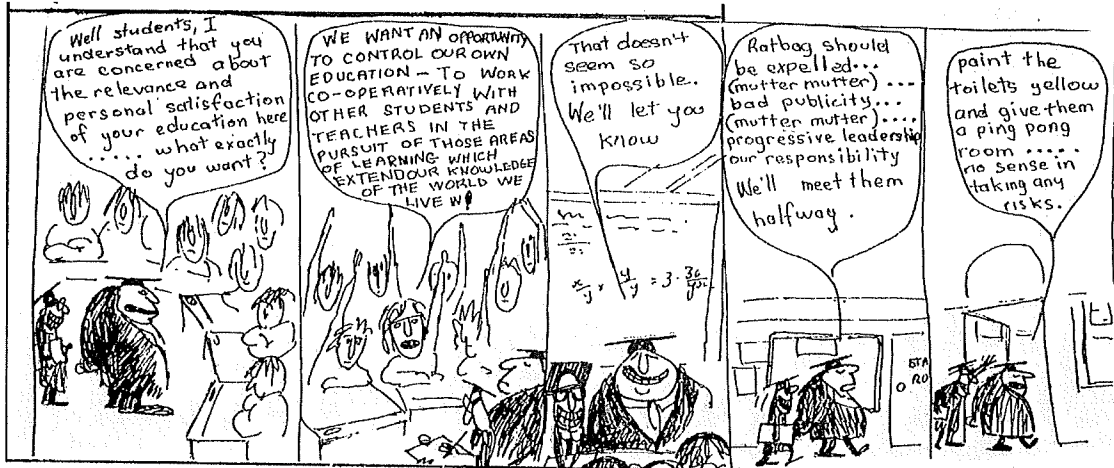 Well students, I
understand that you
are concerned about
the relevance and
personal satisfaction
of your education here
..... what exactly
do you want?
WE WANT AN OPPORTUNITY
TO CONTROL OUR OWN
EDUCATION – TO WORK
CO-OPERATIVELY WITH
OTHER STUDENTS AND
TEACHERS IN THE
PURSUIT OF THOSE AREAS
OF LEARNING WHICH
EXTEND OUR KNOWLEDGE
OF THE WORLD WE
LIVE
That doesn't
seem so
impossible..
We'll let you
know
Ratbag should
be expelled...
(mutter mutter) ....
bad publicity...
(mutter mutter)....
progressive leadership
our responsibility
We'll meet them
halfway.
STA
RO
paint the
toilets yellow
and give them
a ping pong
room .....
no sense in
taking any
risks.